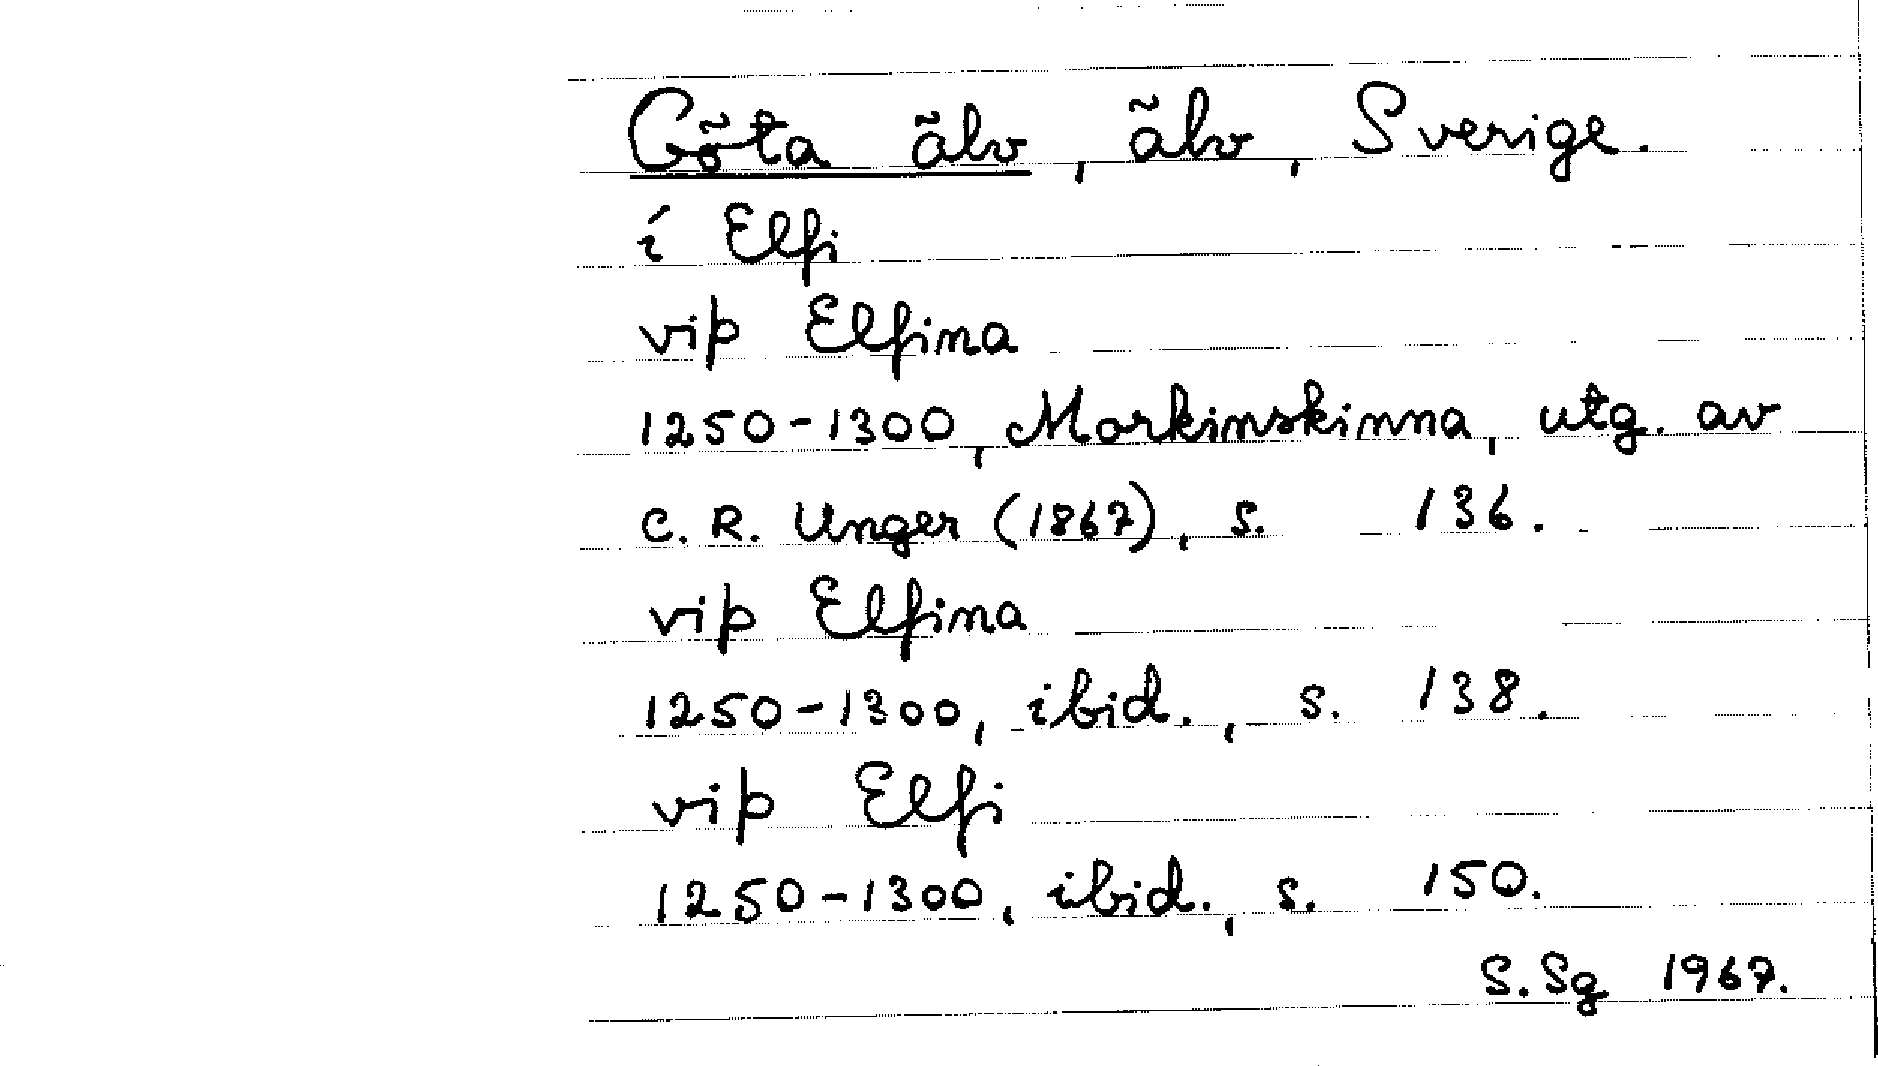 Göta älv, älv, Sverige.
í Elfi
viþ Elfina
1250-1300, Morkinskinna, utg. av
C. R. Unger (1867), s. 136.
viþ Elfina
1250-1300, ibid., s. 138.
viþ Elfi
1250-1300, ibid., s. 150.
S. Sg 1967.